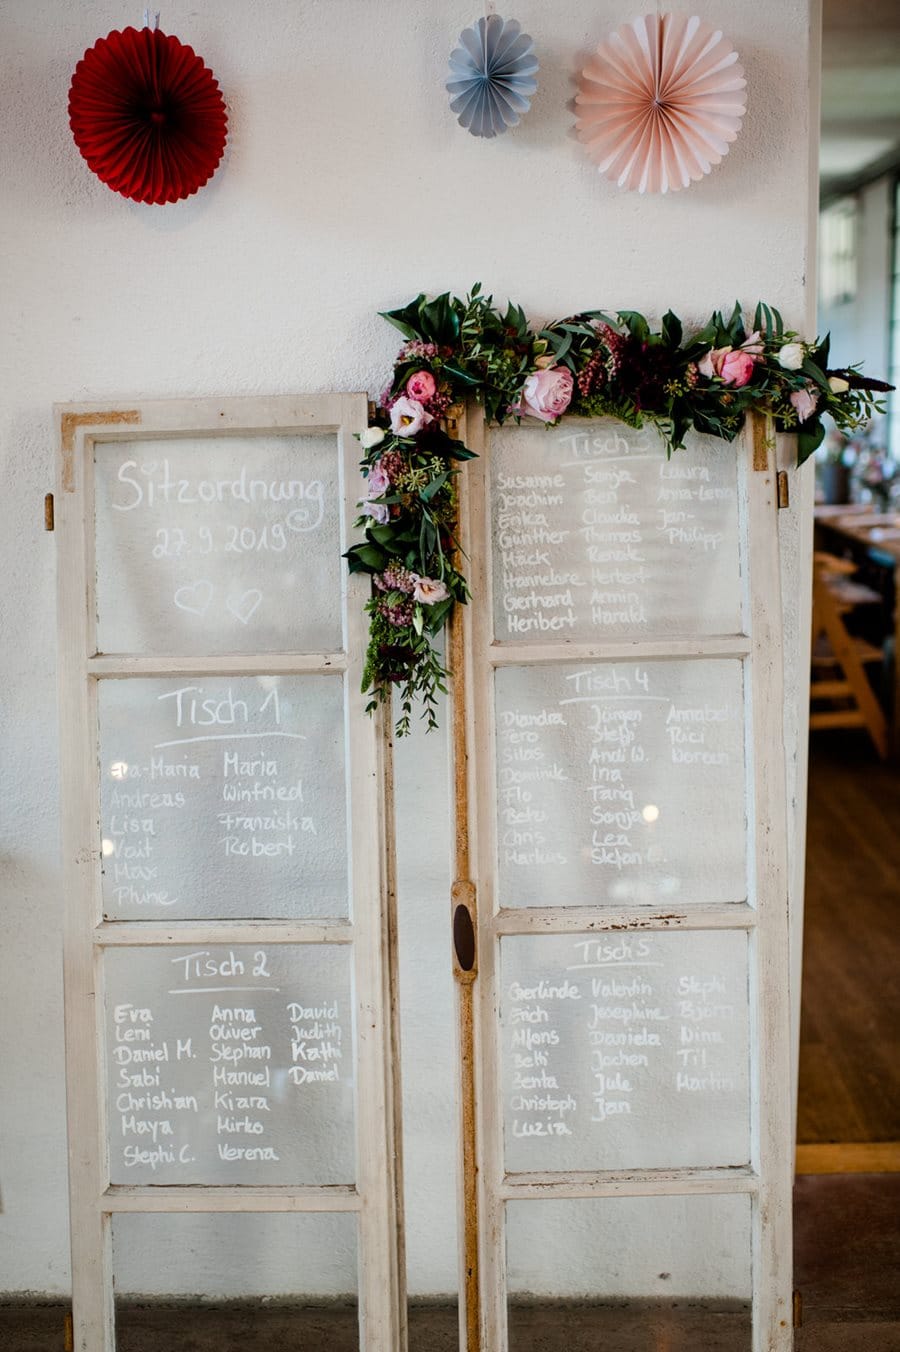 Sitzordnung
27.9.2019
Tisch 1
Eva-Maria Maria
Andreas Winfried
Lisa Franziska
Vait Robert
Max
Phine
Tisch 2
Eva Anna David
Leni Oliver Judith
Daniel M. Stephan Kathi
Sabi Manuel Daniel
Christian Kiara
Maya Mirko
Stephi C. Verena
Tisch 3
Susanne Sonja Laura
Joachim Ben Anna-Lena
Erika Claudia Jan-
Günther Thomas Philipp
Mäck Renate
Hannelore Herbert
Gerhard Armin
Heribert Harald
Tisch 4
Diandra Jürgen Annabell
Tero Steffi Rici
Silas Andi W. Doreen
Dominik Ina
Flo Tariq
Beta Sonja
Chris Lea
Markus Stefan
Tisch 5
Gerlinde Valentin Stephi
Erich Josephine Björn
Alfons Daniela Nina
Betti Jochen Til
Zenta Jule Martin
Christoph Jan
Luzia